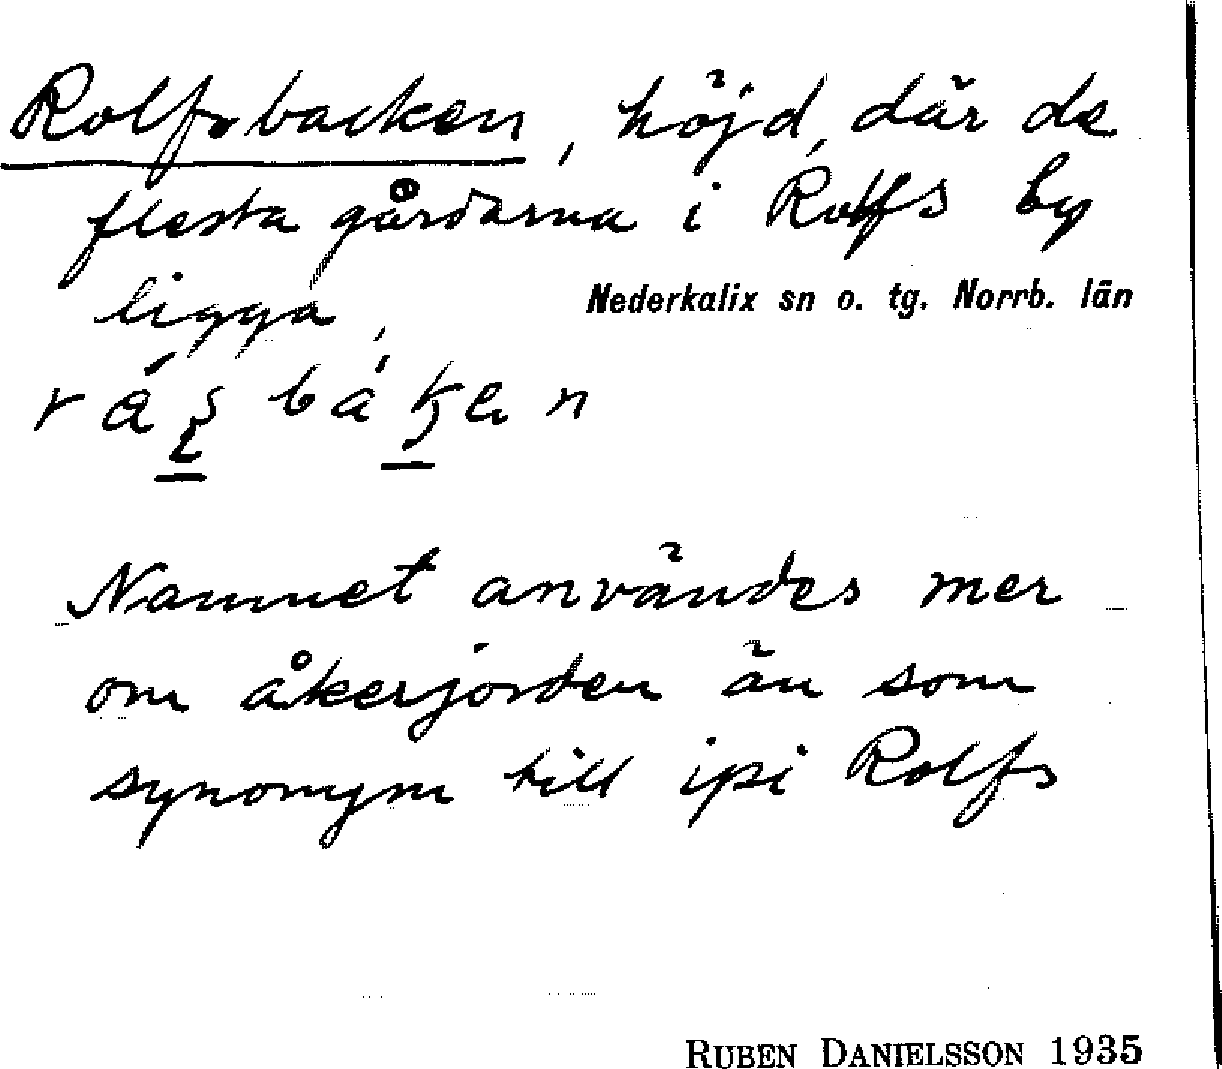 Rolfsbacken, höjd, där de
flesta gårdarna i Rolfs by
ligga,
Nederkalix sn o. tg. Norrb. län
Namnet användes mer
om åkerjorden än som
synonym till ipi Rolfs
RUBEN DANIELSSON 1935